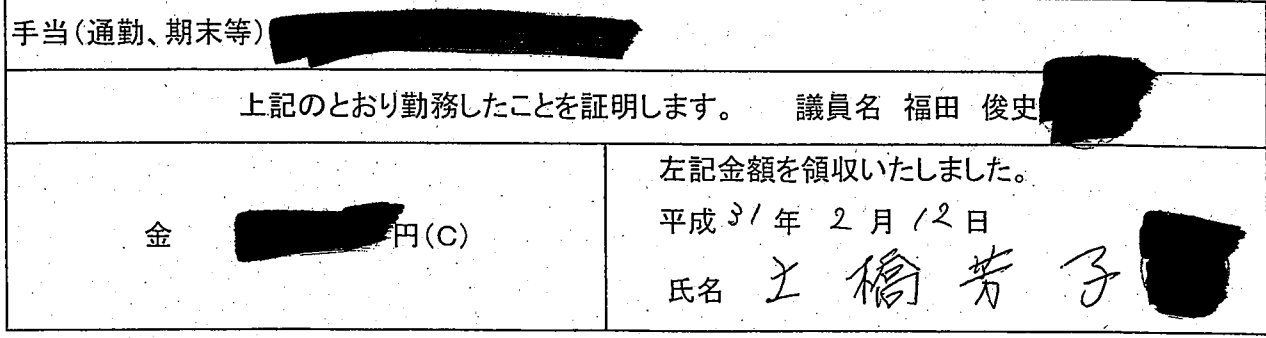 手当(通勤、期末等)
上記のとおり勤務したことを証明します。 議員名 福田 俊史
金 円(C)
左記金額を領収いたしました。
平成31年 2月12日
氏名 土橋芳子